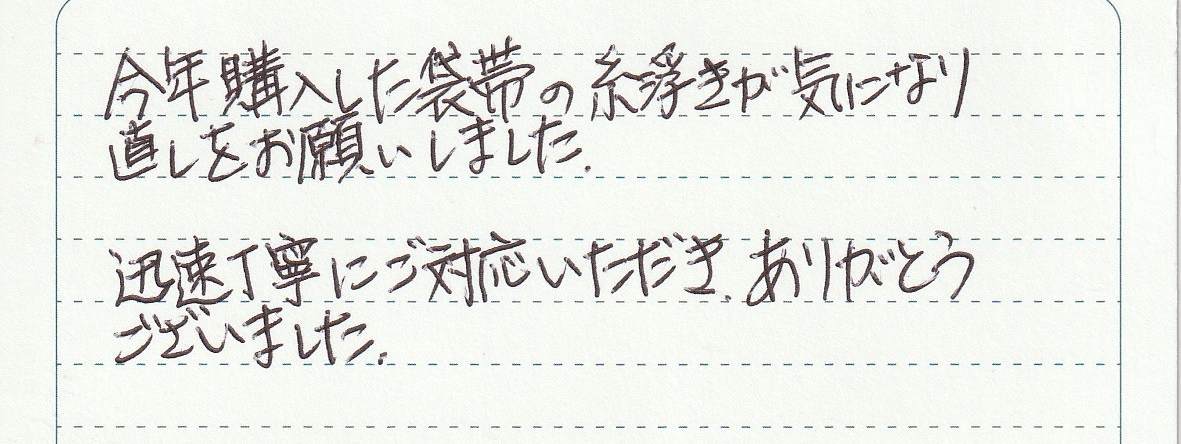 今年購入した袋帯の糸浮きが気になり
直しをお願いしました.
迅速丁寧にご対応いただき、ありがとう
ございました.